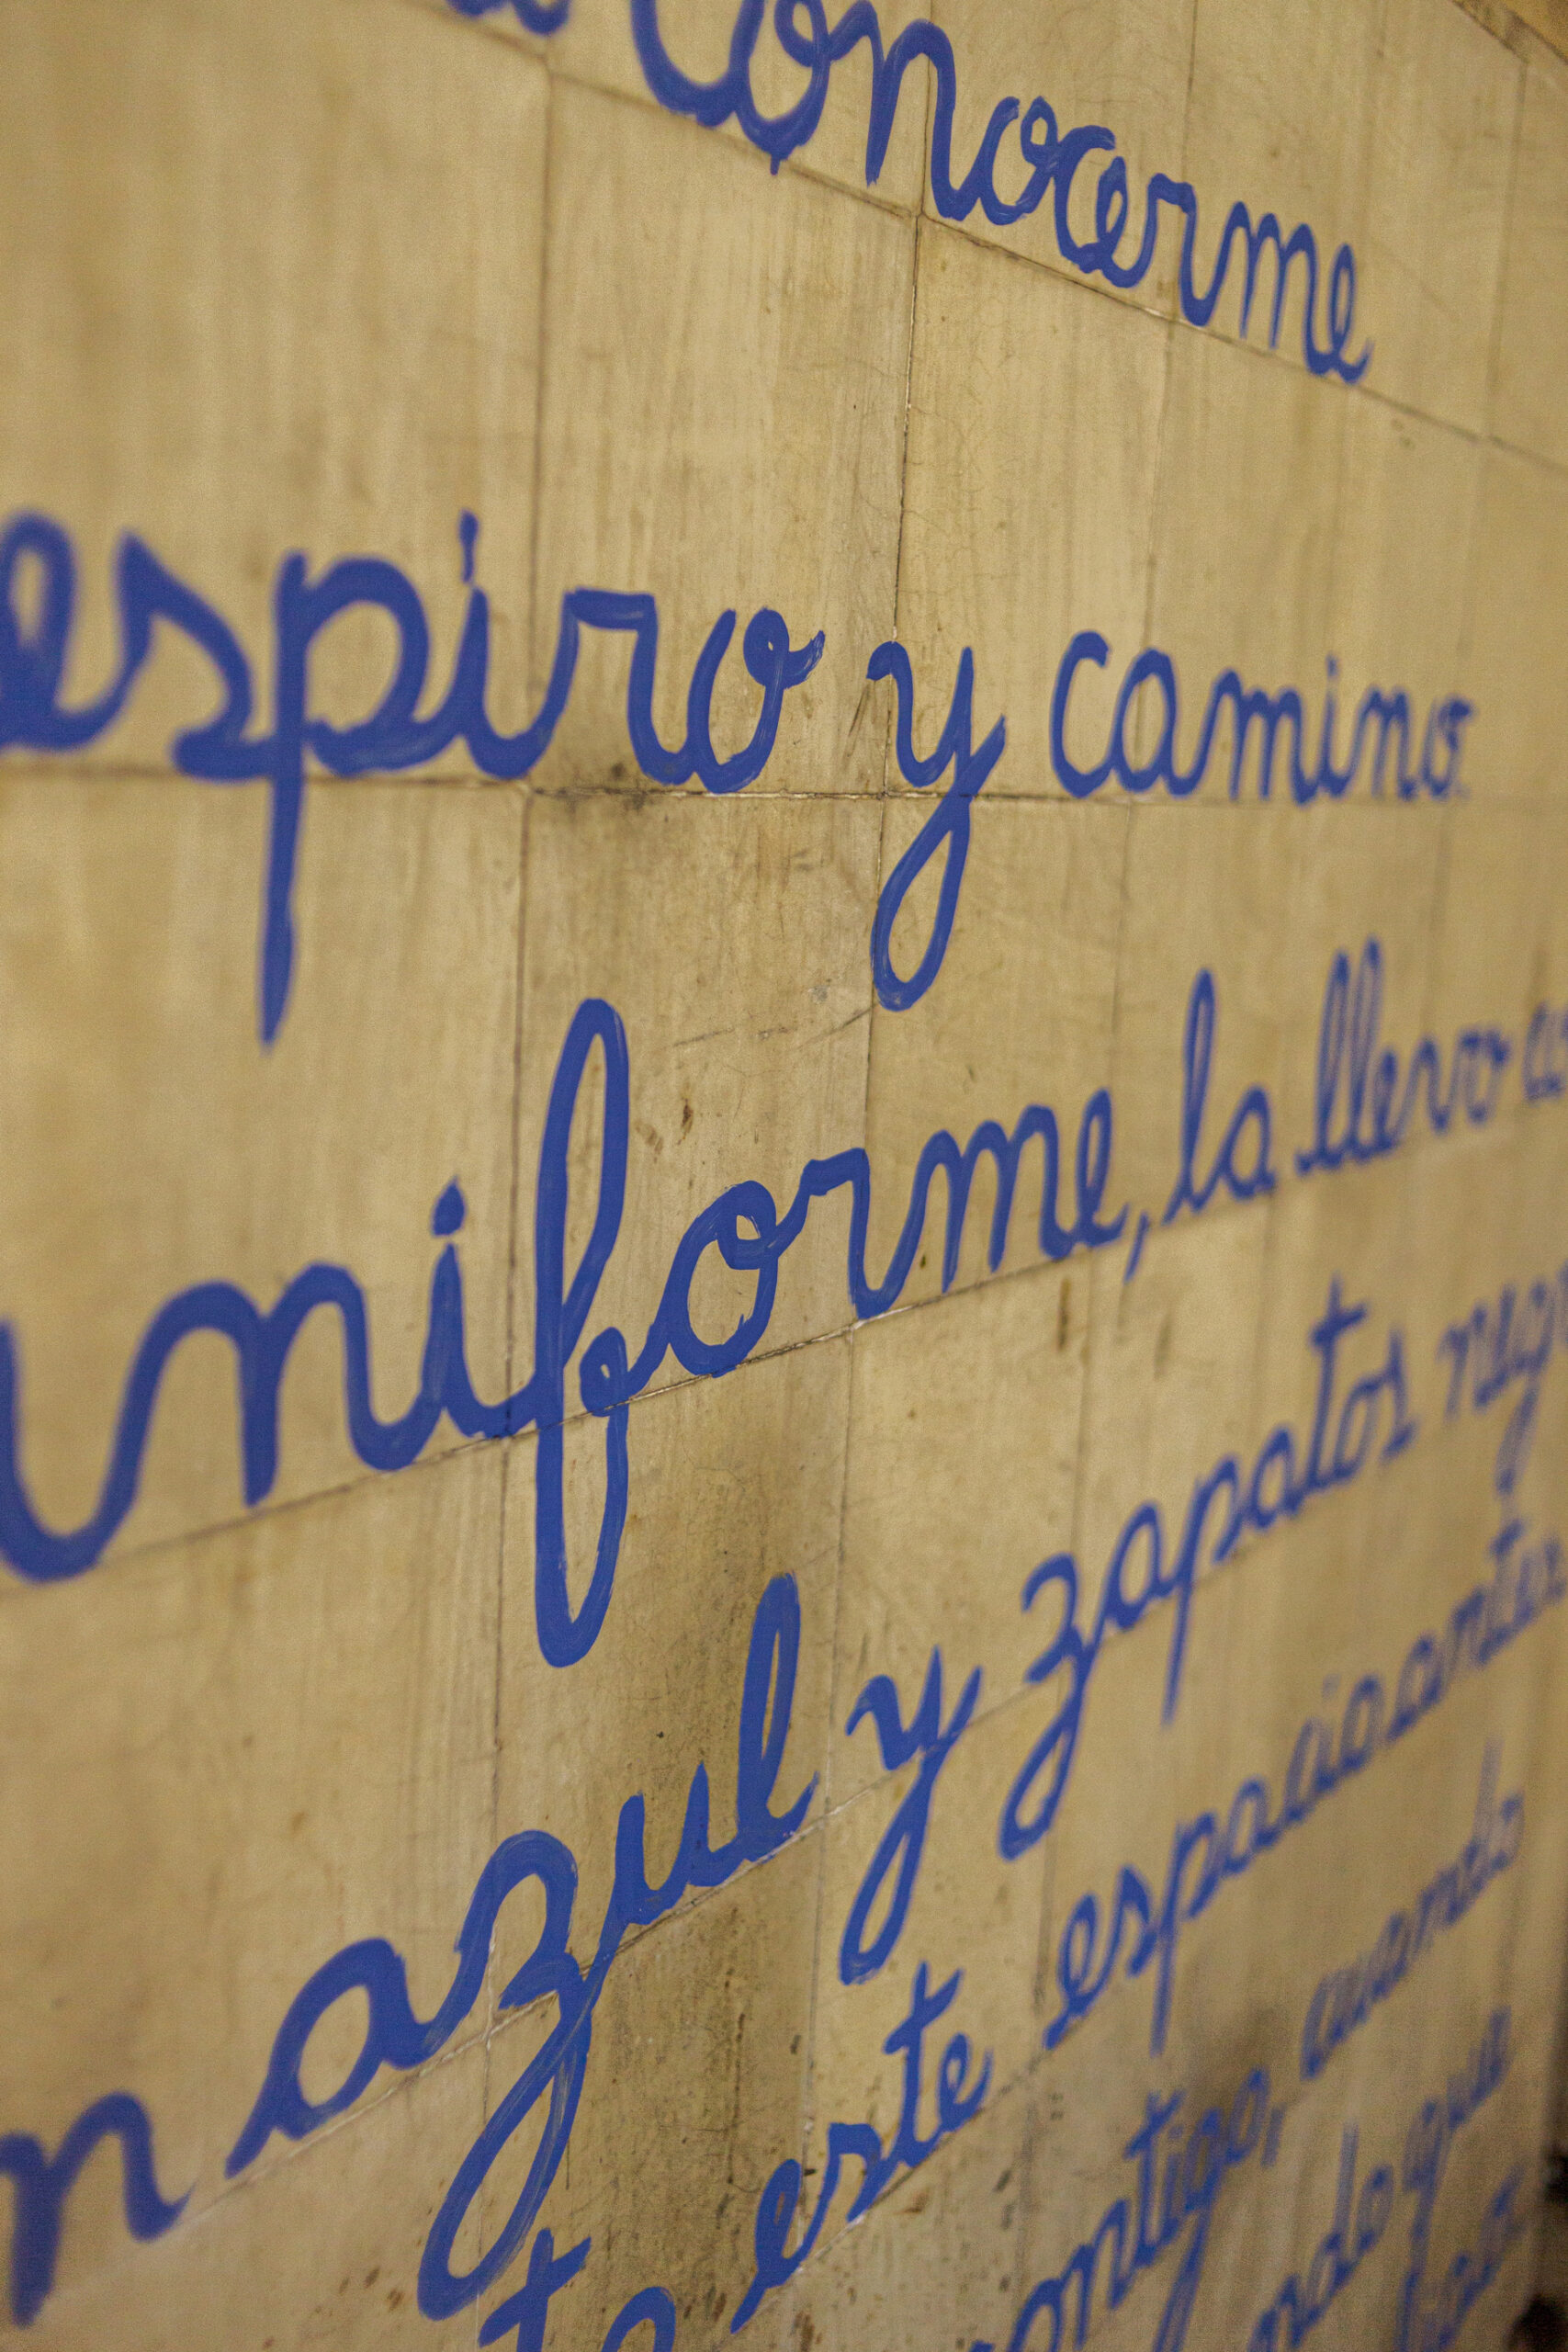 conocerme
espiro y camino.
niforme, la llevo
n azul y zapatos neg
te este espacio antes
ontigo, cuando
ndo que